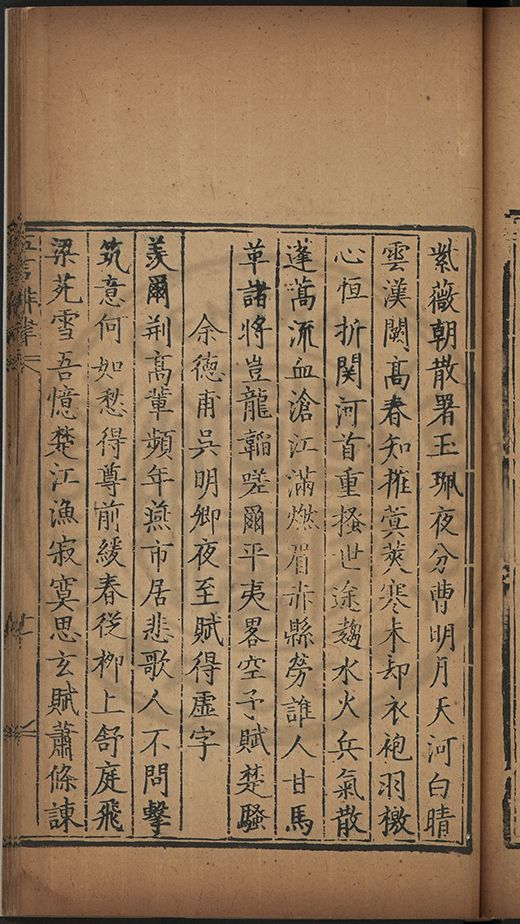 紫薇朝散署玉珮夜分曹明月天河白晴
雲漢闕高春知推蓂莢寒未却衣袍羽檄
心恒折関河首重搔世途趨水火兵氣散
蓬蒿流血滄江滿燃眉赤縣勞誰人甘馬
革諸將豈龍韜嗟爾平夷畧空予賦楚騷
余德甫吳明卿夜至賦得虛字
羡爾荆髙輩頻年燕市居悲歌人不問擊
筑意何如愁得尊前緩春從栁上舒庭飛
梁苑雪吾憶楚江漁寂寞思玄賦蕭條諫